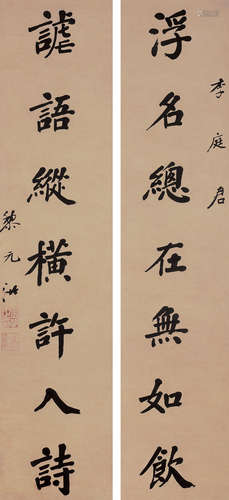 李庭君
浮名總在無如飲
謔語縱橫許入詩
黎元洪